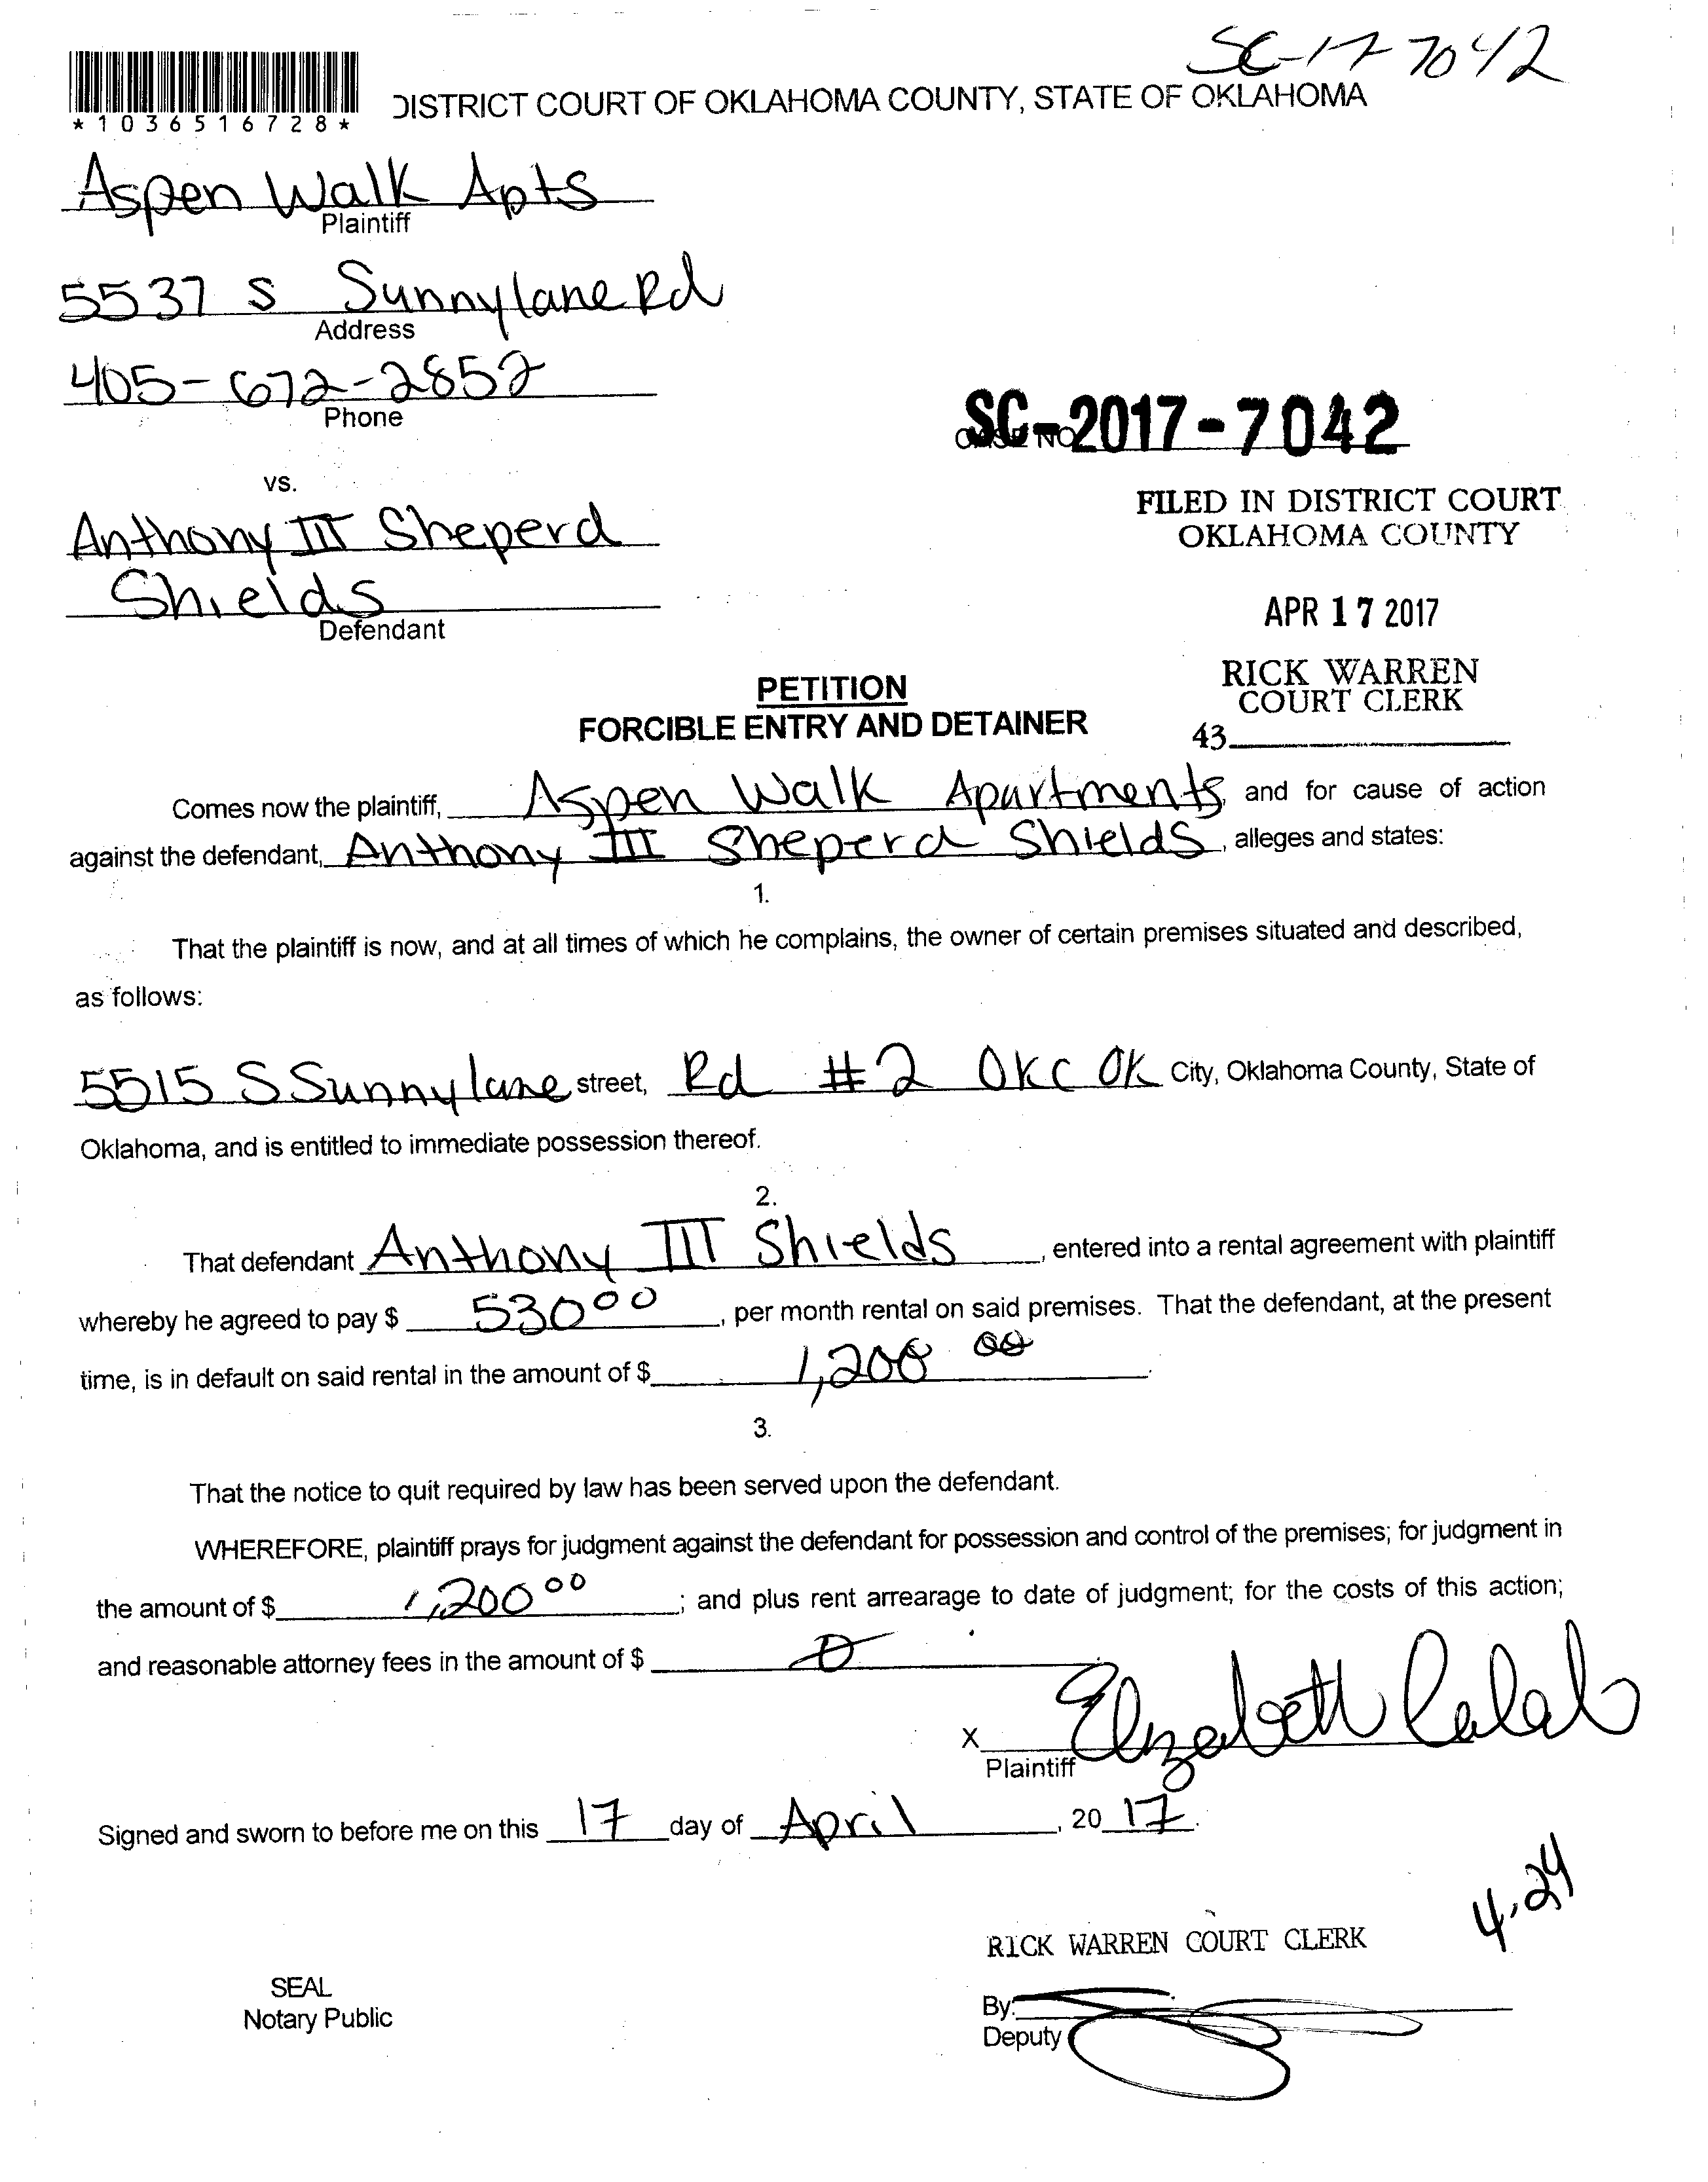 SC-17-7042
*1036516728*
DISTRICT COURT OF OKLAHOMA COUNTY, STATE OF OKLAHOMA
Aspen Walk Apts
Plaintiff
5537 S Sunnylane Rd
Address
405-672-2852
Phone
SC-2017-7042
CASE NO
vs.
FILED IN DISTRICT COURT
OKLAHOMA COUNTY
Anthony III Sheperd
Shields
Defendant
APR 17 2017
RICK WARREN
COURT CLERK
43
PETITION
FORCIBLE ENTRY AND DETAINER
Comes now the plaintiff, Aspen Walk Apartments, and for cause of action
against the defendant, Anthony III Sheperd Shields, alleges and states:
1.
That the plaintiff is now, and at all times of which he complains, the owner of certain premises situated and described,
as follows:
5515 S Sunnylane street, Rd #2 OKC OK City, Oklahoma County, State of
Oklahoma, and is entitled to immediate possession thereof.
2.
That defendant Anthony III Shields, entered into a rental agreement with plaintiff
whereby he agreed to pay $ 530 00, per month rental on said premises. That the defendant, at the present
time, is in default on said rental in the amount of $ 1,200 00.
3.
That the notice to quit required by law has been served upon the defendant.
WHEREFORE, plaintiff prays for judgment against the defendant for possession and control of the premises; for judgment in
the amount of $ 1,200 00; and plus rent arrearage to date of judgment; for the costs of this action;
and reasonable attorney fees in the amount of $ 0.
X Elizabeth
Plaintiff
Signed and sworn to before me on this 17 day of April, 20 17.
4.24
RICK WARREN COURT CLERK
SEAL
Notary Public
By:
Deputy